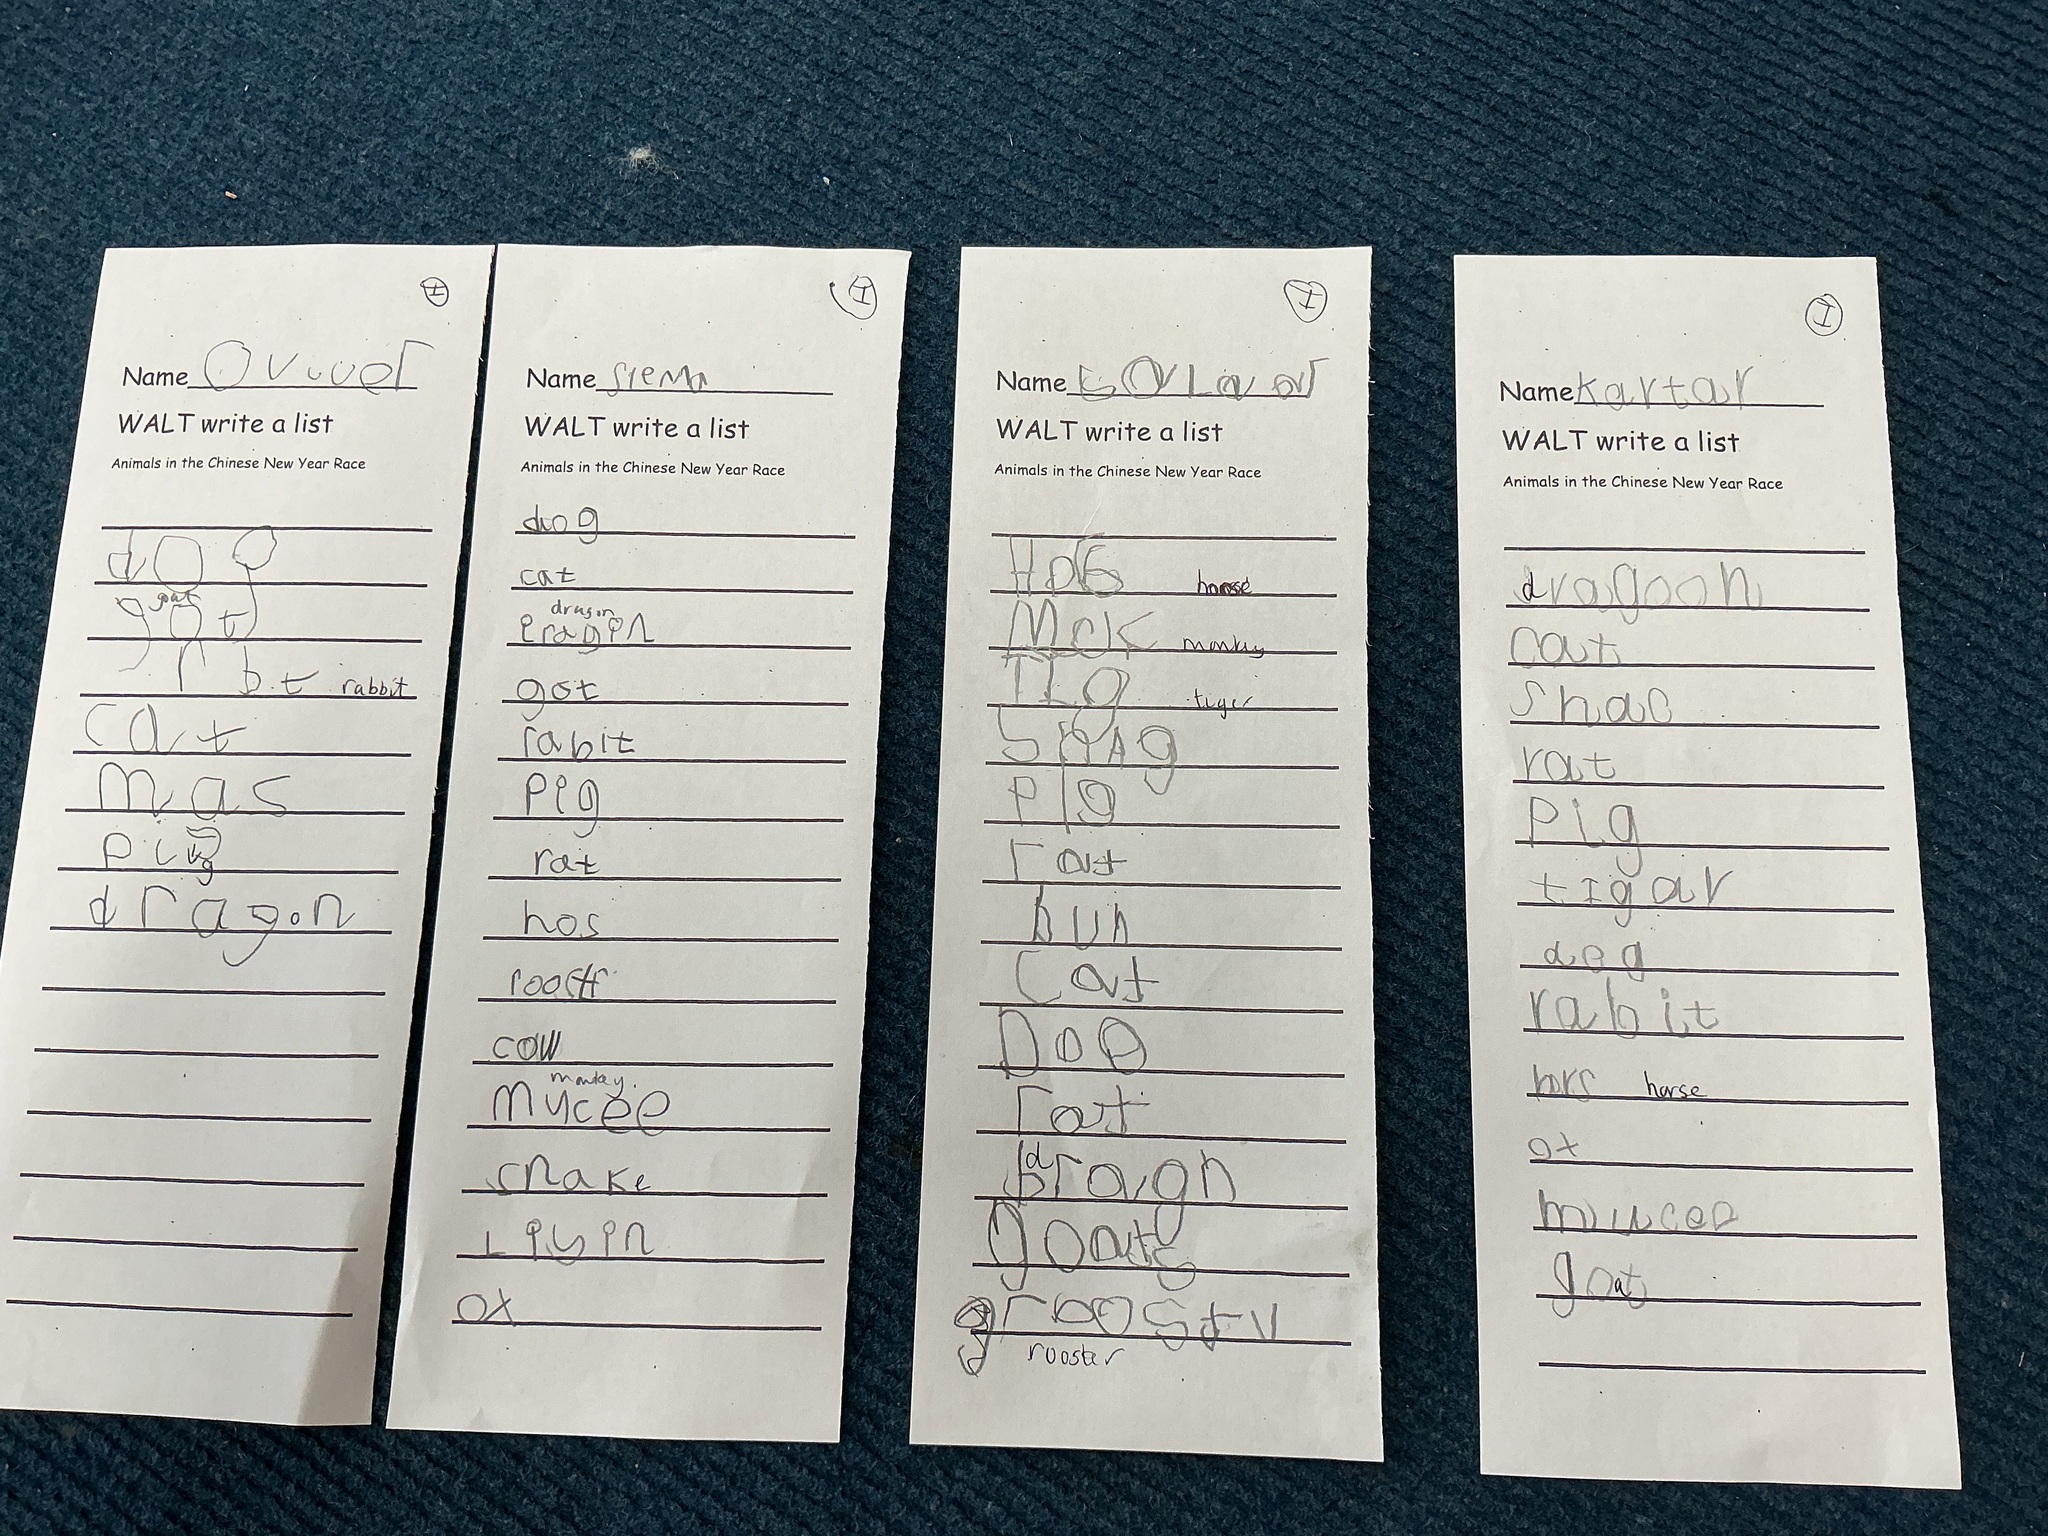 I
Name Oliver
WALT write a list
Animals in the Chinese New Year Race
dog
goat
got
r b t rabbit
cat
mas
pig
dragon
I
Name siena
WALT write a list
Animals in the Chinese New Year Race
dog
cat
dragon
eragin
got
rabit
pig
rat
hos
roostr
cow
monkey
mycee
snake
ox
I
Name
WALT write a list
Animals in the Chinese New Year Race
HoG horse
McK monkey
TIg tiger
SnAg
PIg
rat
bun
Cat
Dog
rat
dragn
goats
groostv
rooster
I
Name Kartar
WALT write a list
Animals in the Chinese New Year Race
dragoon
cat
snac
rat
Pig
tigar
dog
rabit
hors horse
ox
muncee
goat